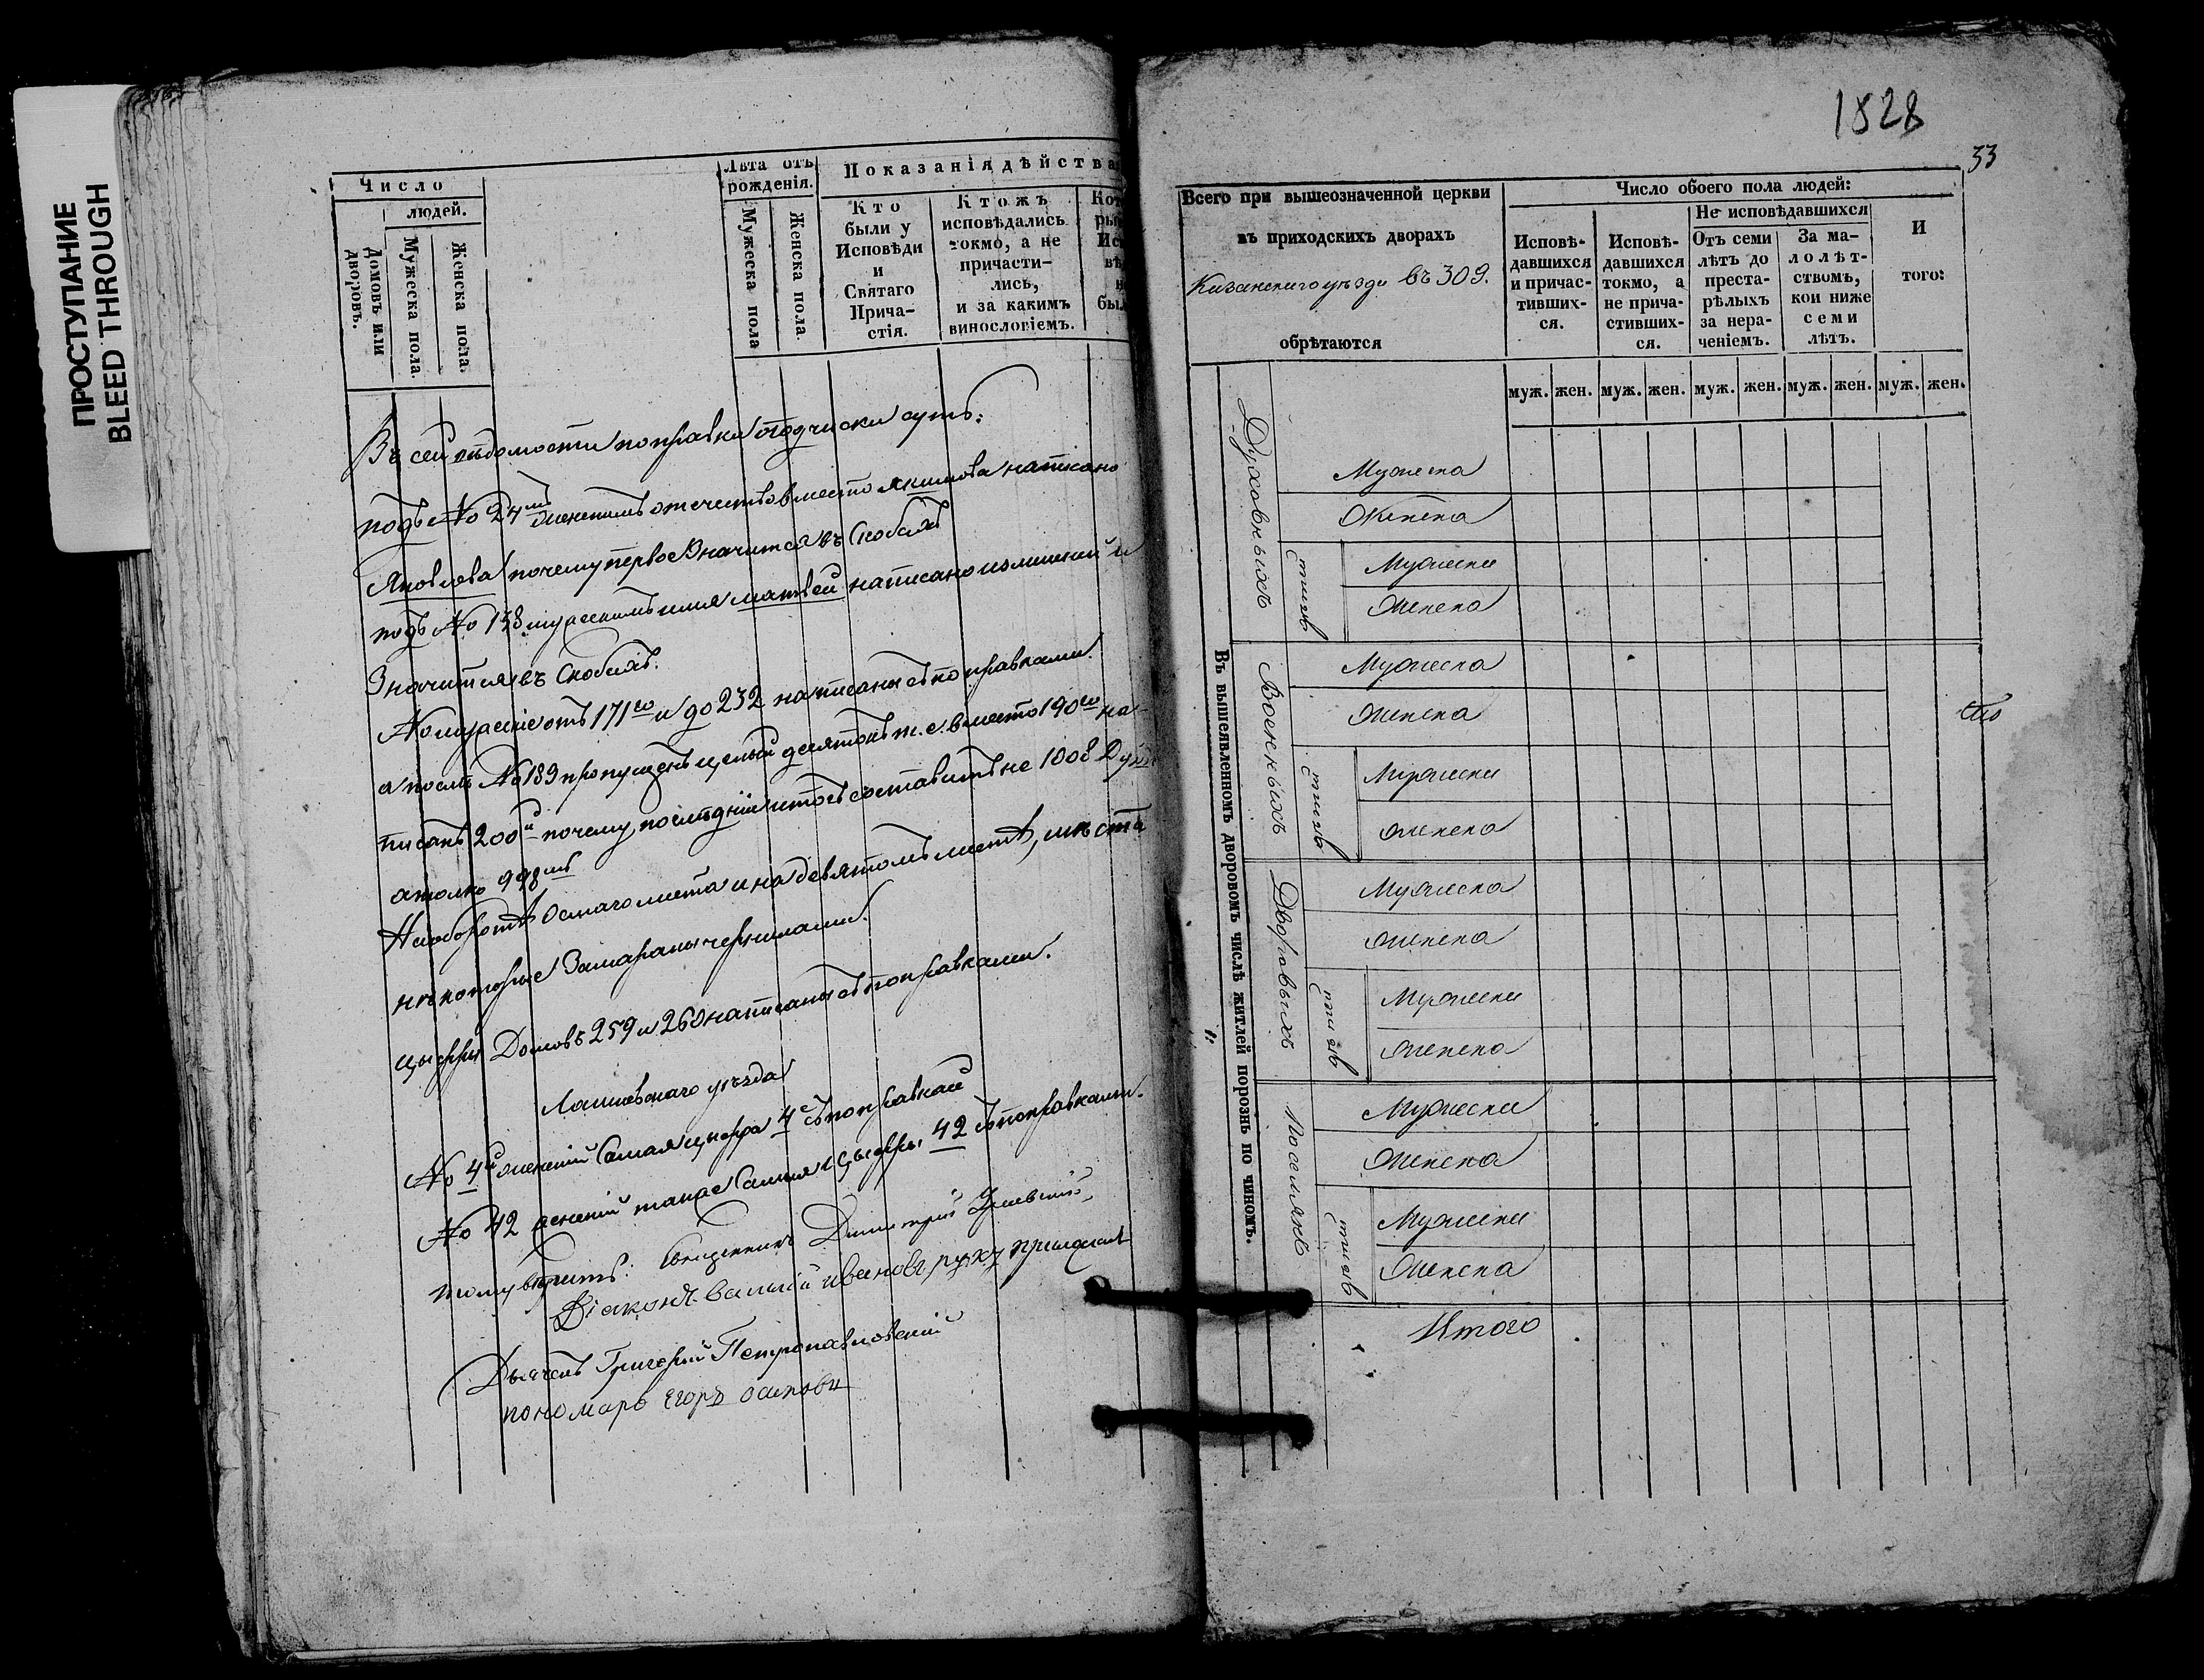 ПРОСТУПАНИЕ
BLEED THROUGH
Число
людей.
Домовъ или дворовъ.
Мужеска пола.
Женска пола.
Лѣта отъ рожденія.
Мужеска пола
Женска пола.
Показанія дѣйства
Кто
были у
Исповѣди
и
Святаго
Прича-
стія.
Ктожъ
исповѣдались
токмо, а не
причасти-
лись,
и за какимъ
винословіемъ.
Въ сей вѣдомости поправки и подчиски суть:
подъ № 24мъ женскимъ отечество вместо Якимова написано
Яковлева почему первое значится въ скобахъ
подъ № 138 мужескимъ имя матвей написано излишний и
Значится въ скобахъ.
№ мужескіе отъ 171го и до 232 написаны съ поправками.
а послѣ № 189 пропущенъ целый десятокъ т. е. вместо 190го на-
писанъ 200й почему последній итогъ составитъ не 1008 Душъ
а толко 998мъ
На оборотѣ осмаго листа и на девятомъ листѣ, мѣста
нѣкоторые Замараны чернилами.
цыфры Домовъ 259 и 260 написаны съ поправками.
Лаишевскаго уѣзда
№ 4й женский самая цыфра 4 съ поправкой
№ 42 женский также самыя цыфры 42 съ поправками.
тому вѣрить: Священникъ Димитрий
Діаконъ Василій Ивановъ руку приложилъ
Дьячекъ Григорий Петропавловский
пономарь Егоръ осиповъ
1828
33
Всего при вышеозначенной церкви
въ приходскихъ дворахъ
Казанского уѣзда въ 309.
обрѣтаются
Число обоего пола людей:
Исповѣ-
давшихся
и причас-
тивших-
ся.
Исповѣ-
давшихся
токмо, а
не прича-
стивших-
ся.
Не исповѣдавшихся
Отъ семи
лѣтъ до
преста-
рѣлыхъ
за нера-
ченіемъ.
За ма-
лолѣт-
ствомъ,
кои ниже
семи
лѣтъ.
И
того:
муж. жен. муж. жен. муж. жен. муж. жен. муж. жен.
Въ вышеявленномъ дворовомъ числѣ житлей порознь по чиномъ.
Духовныхъ
Мужеска
Женска
Мужеска
Женска
Военныхъ
Мужеска
Женска
Мужеска
Женска
Дворовыхъ
Мужеска
Женска
Мужеска
Женска
Поселянъ
Мужеска
Женска
Мужеска
Женска
Итого